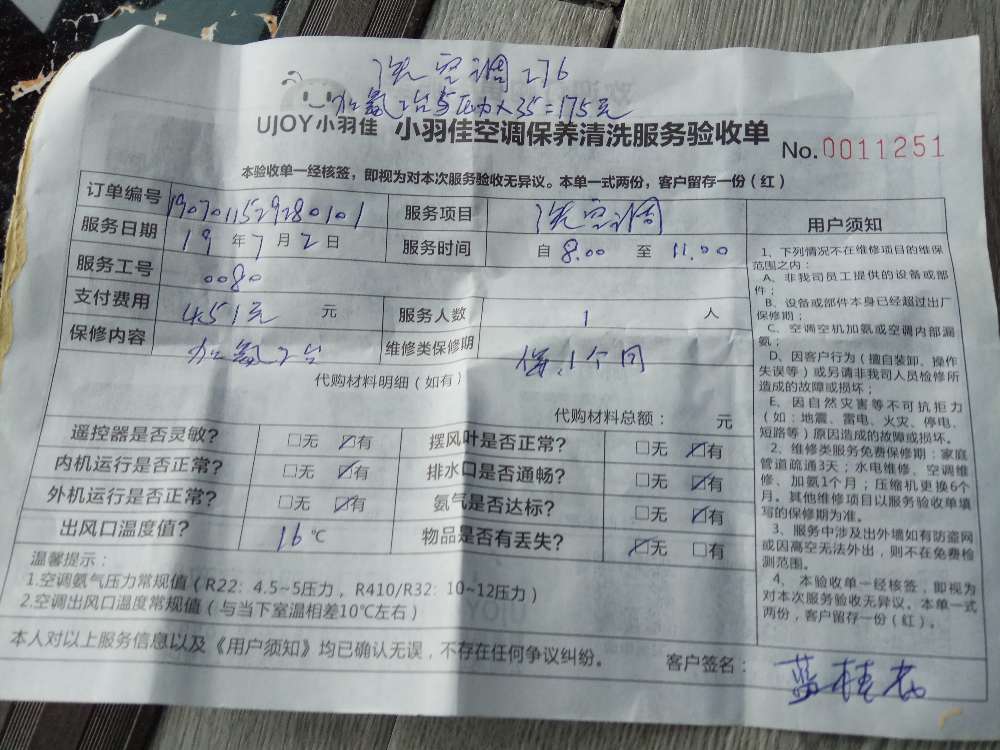 洗空调 276
加氨2台5压力×35=175元
UJOY小羽佳 小羽佳空调保养清洗服务验收单 No.0011251
本验收单一经核签，即视为对本次服务验收无异议。本单一式两份，客户留存一份（红）
订单编号 1907011529280101 服务项目 洗空调
服务日期 19 年 7 月 2 日 服务时间 自 8.00 至 11.00
服务工号 0080
支付费用 451元 元 服务人数 1 人
保修内容 加氨2台 维修类保修期 保1个月
代购材料明细（如有）
代购材料总额： 元
遥控器是否灵敏? □无 ☑有 摆风叶是否正常? □无 ☑有
内机运行是否正常? □无 ☑有 排水口是否通畅? □无 ☑有
外机运行是否正常? □无 ☑有 氨气是否达标? □无 ☑有
出风口温度值? 16 ℃ 物品是否有丢失? ☑无 □有
温馨提示：
1.空调氨气压力常规值（R22：4.5~5压力，R410/R32：10~12压力）
2.空调出风口温度常规值（与当下室温相差10℃左右）
本人对以上服务信息以及《用户须知》均已确认无误，不存在任何争议纠纷。
客户签名： 蓝桂花
用户须知
1、下列情况不在维修项目的维保
范围之内：
A、非我司员工提供的设备或部
件；
B、设备或部件本身已经超过出厂
保修期；
C、空调空机加氨或空调内部漏
氨；
D、因客户行为（擅自装卸、操作
失误等）或另请非我司人员检修所
造成的故障或损坏；
E、因自然灾害等不可抗拒力
（如：地震、雷电、火灾、停电、
短路等）原因造成的故障或损坏。
2、维修类服务免费保修期：家庭
管道疏通3天；水电维修、空调维
修、加氨1个月；压缩机更换6个
月。其他维修项目以服务验收单填
写的保修期为准。
3、服务中涉及出外墙如有防盗网
或因高空无法外出，则不在免费检
测范围。
4、本验收单一经核签，即视为
对本次服务验收无异议。本单一式
两份，客户留存一份（红）。